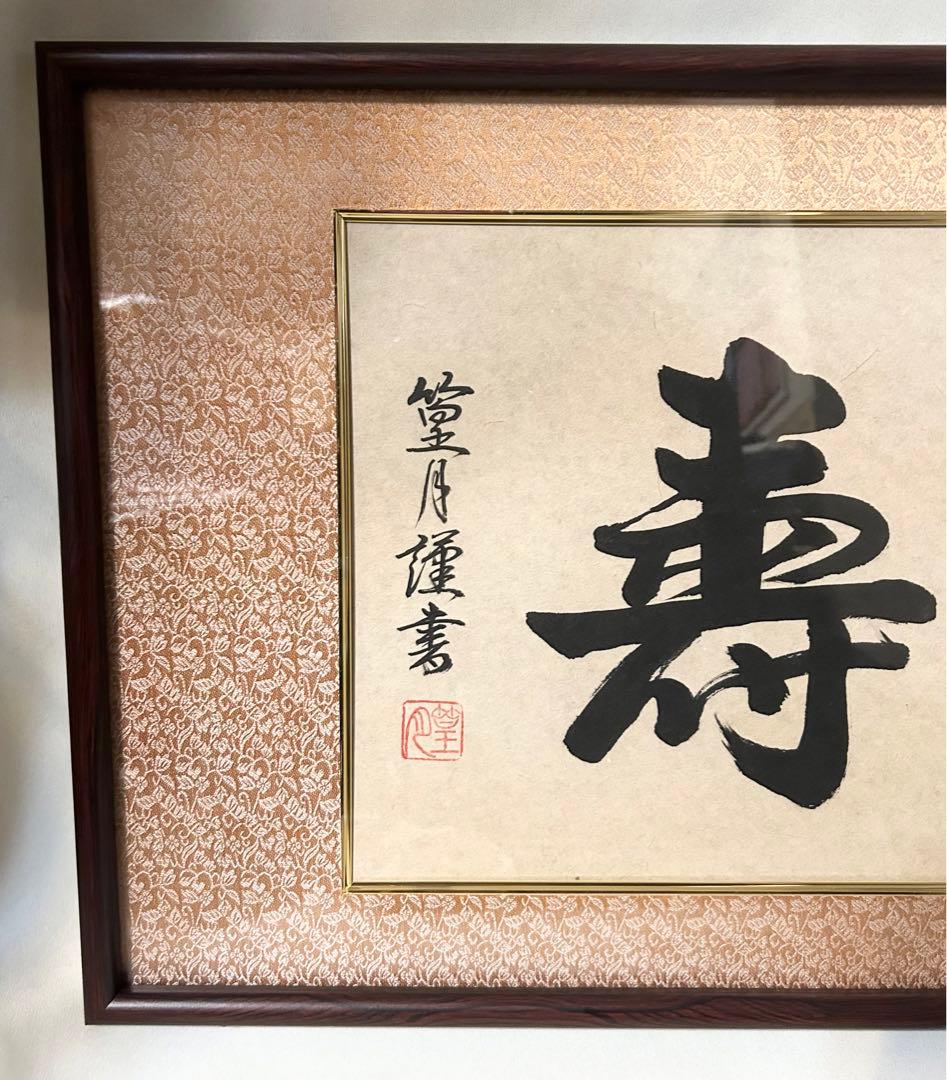 寿
篁月謹書
篁月